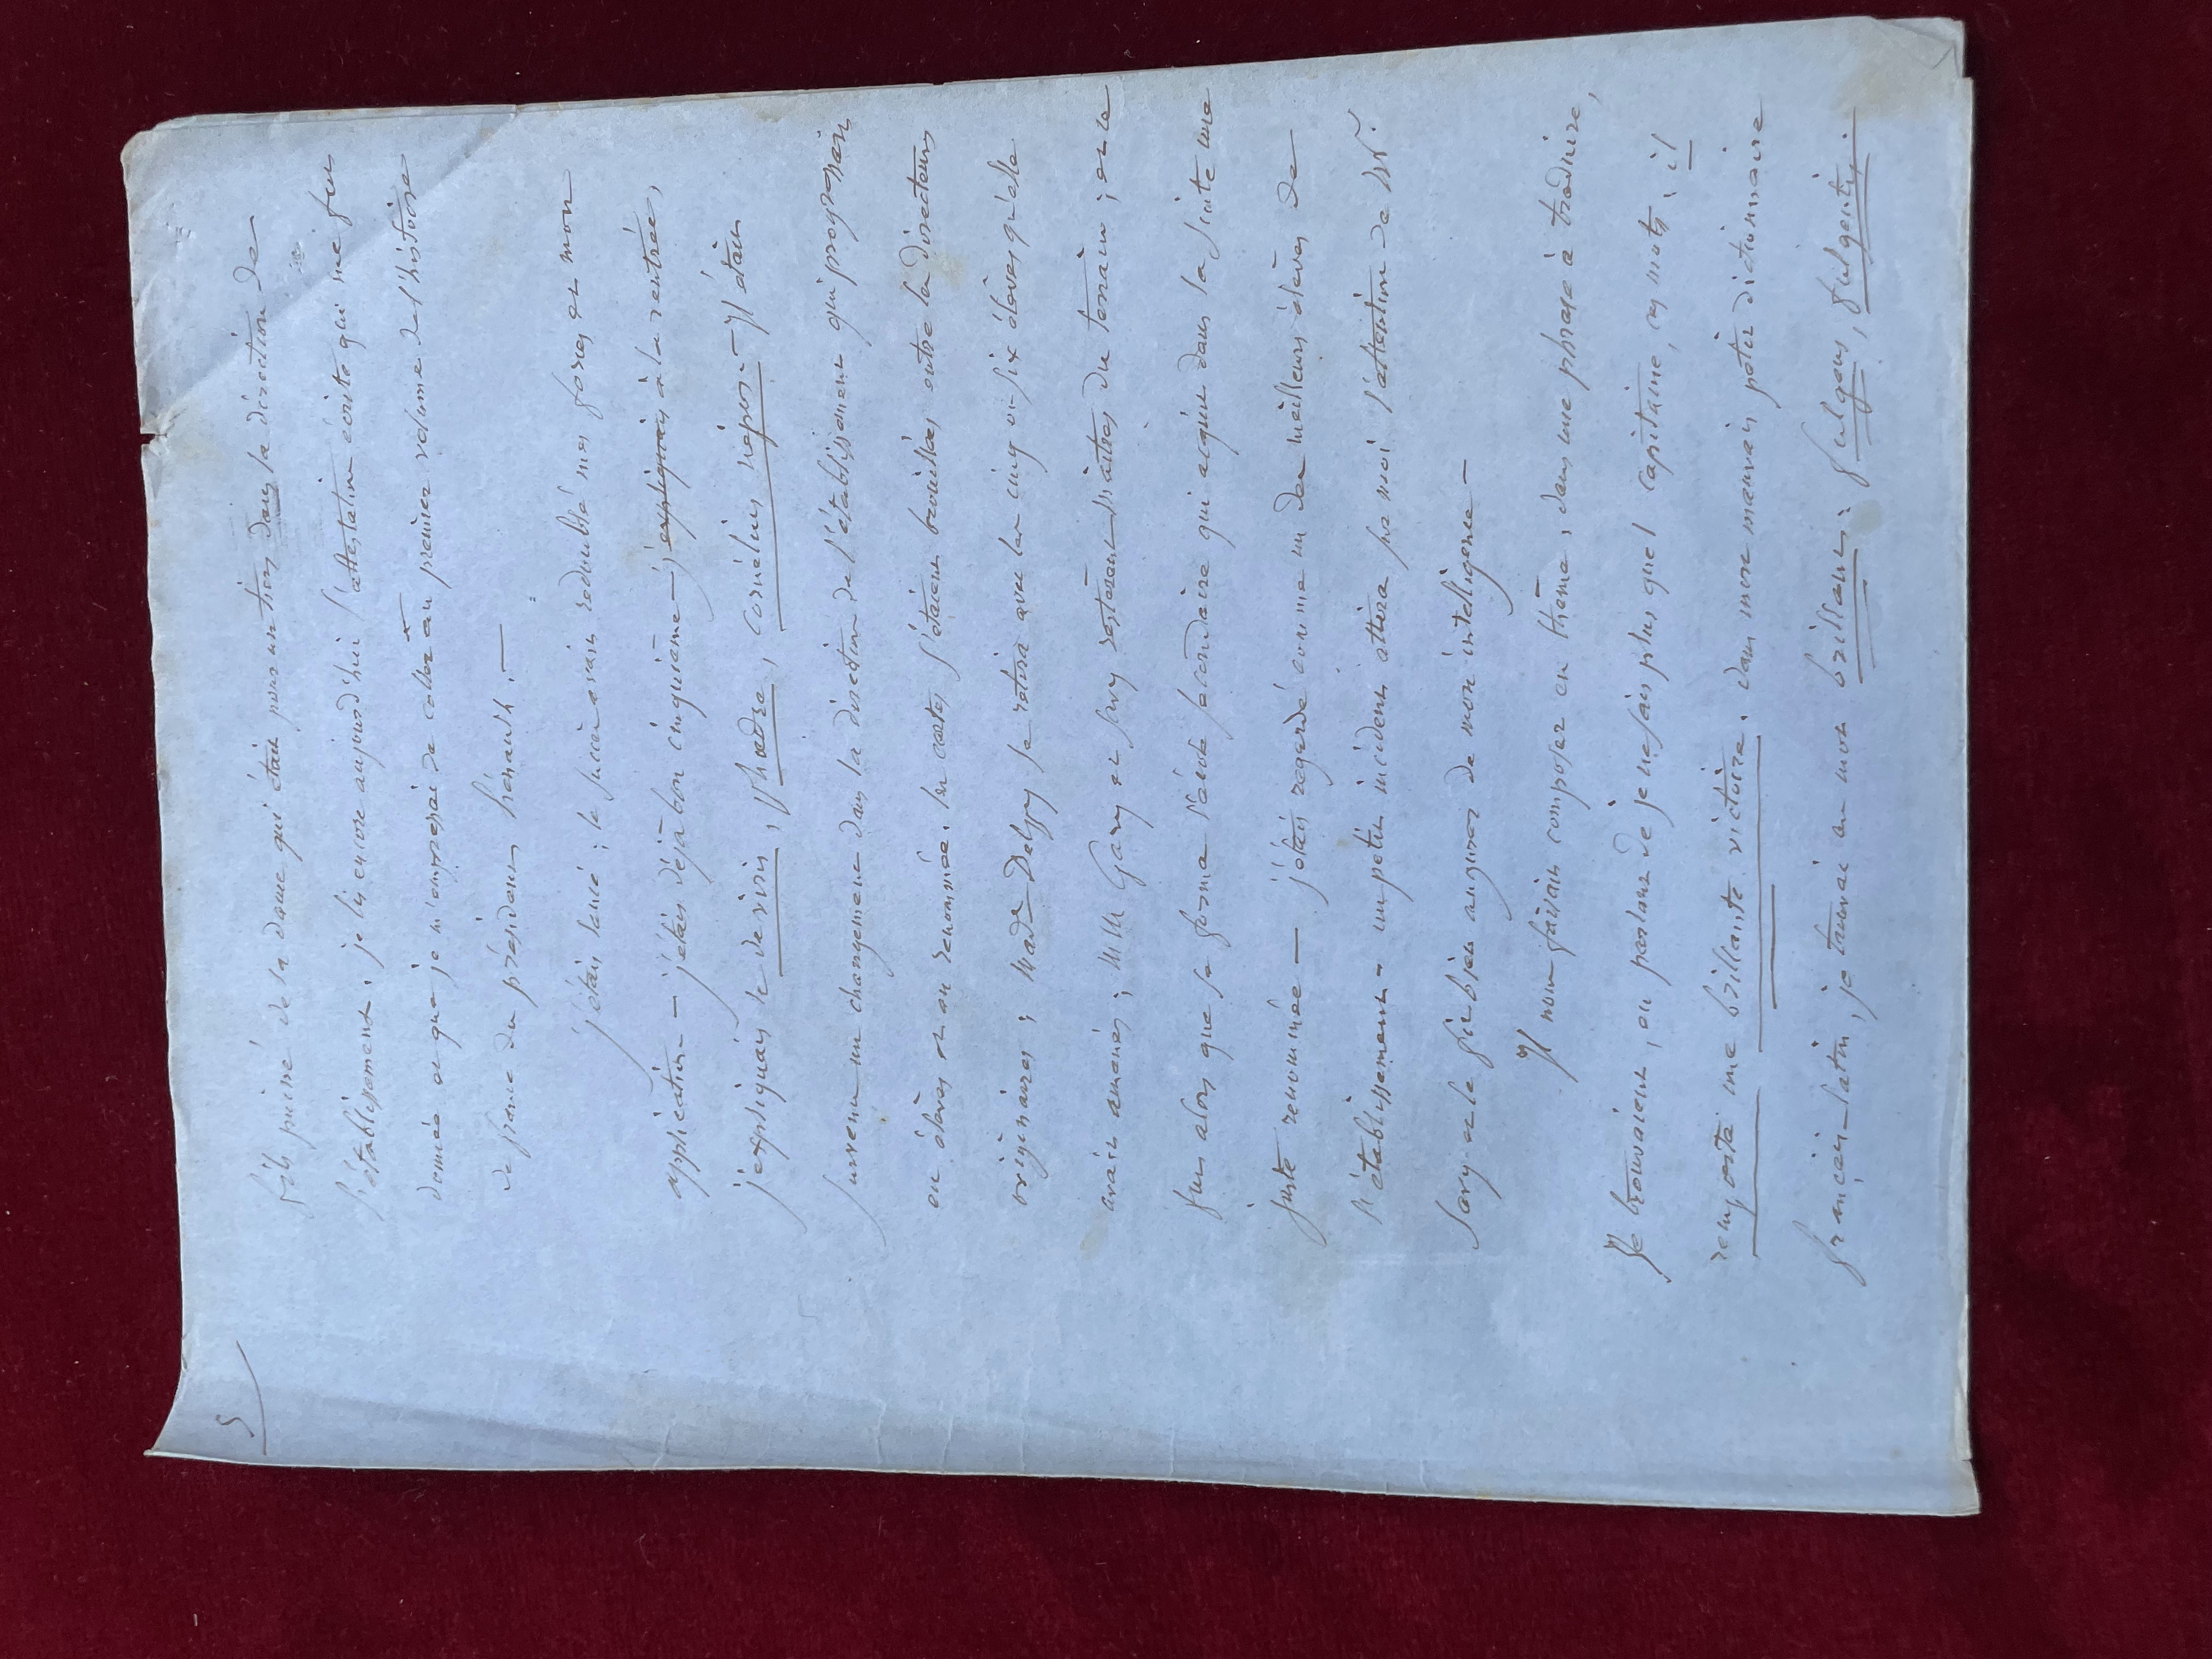 5
fils puiné de la dame qui était pour un tiers dans la direction de
l'établissement. je lis encore aujourd'hui l'attestation écrite qui me fut
donnée et que je m'empressai de coller au premier volume de l'histoire
de france du président hénault. —
j'étais lancé ; le succès avait redoublé mes forces et mon
application — j'étais déjà bon cinquième — j'expliquais à la rentrée,
j'expliquais le de viris, Phædre, cornélius népos. — Il était
survenu un changement dans la direction de l'établissement qui progressait
en élèves et en renommée. les cartes s'étaient brouillées entre les directeurs
originaires ; Made Delppy se retira avec les cinq ou six élèves qu'elle
avait amenés ; MM Gary et Savy restèrent maîtres du terrain ; et ce
fut alors que se forma l'école secondaire qui acquit dans la suite une
juste renommée — j'étais regardé comme un des meilleurs élèves de
l'établissement. un petit incident attira sur moi l'attention de Mr.
Savy et le fit bien augurer de mon intelligence —
Il nous faisait composer en thême, dans une phrase à traduire,
se trouvaient, en parlant de je ne sais plus quel capitaine, ces mots : il
remporta une brillante victoire. dans mon mauvais petit dictionnaire
français-latin, je trouvai au mot brillant : fulgens, fulgentis.